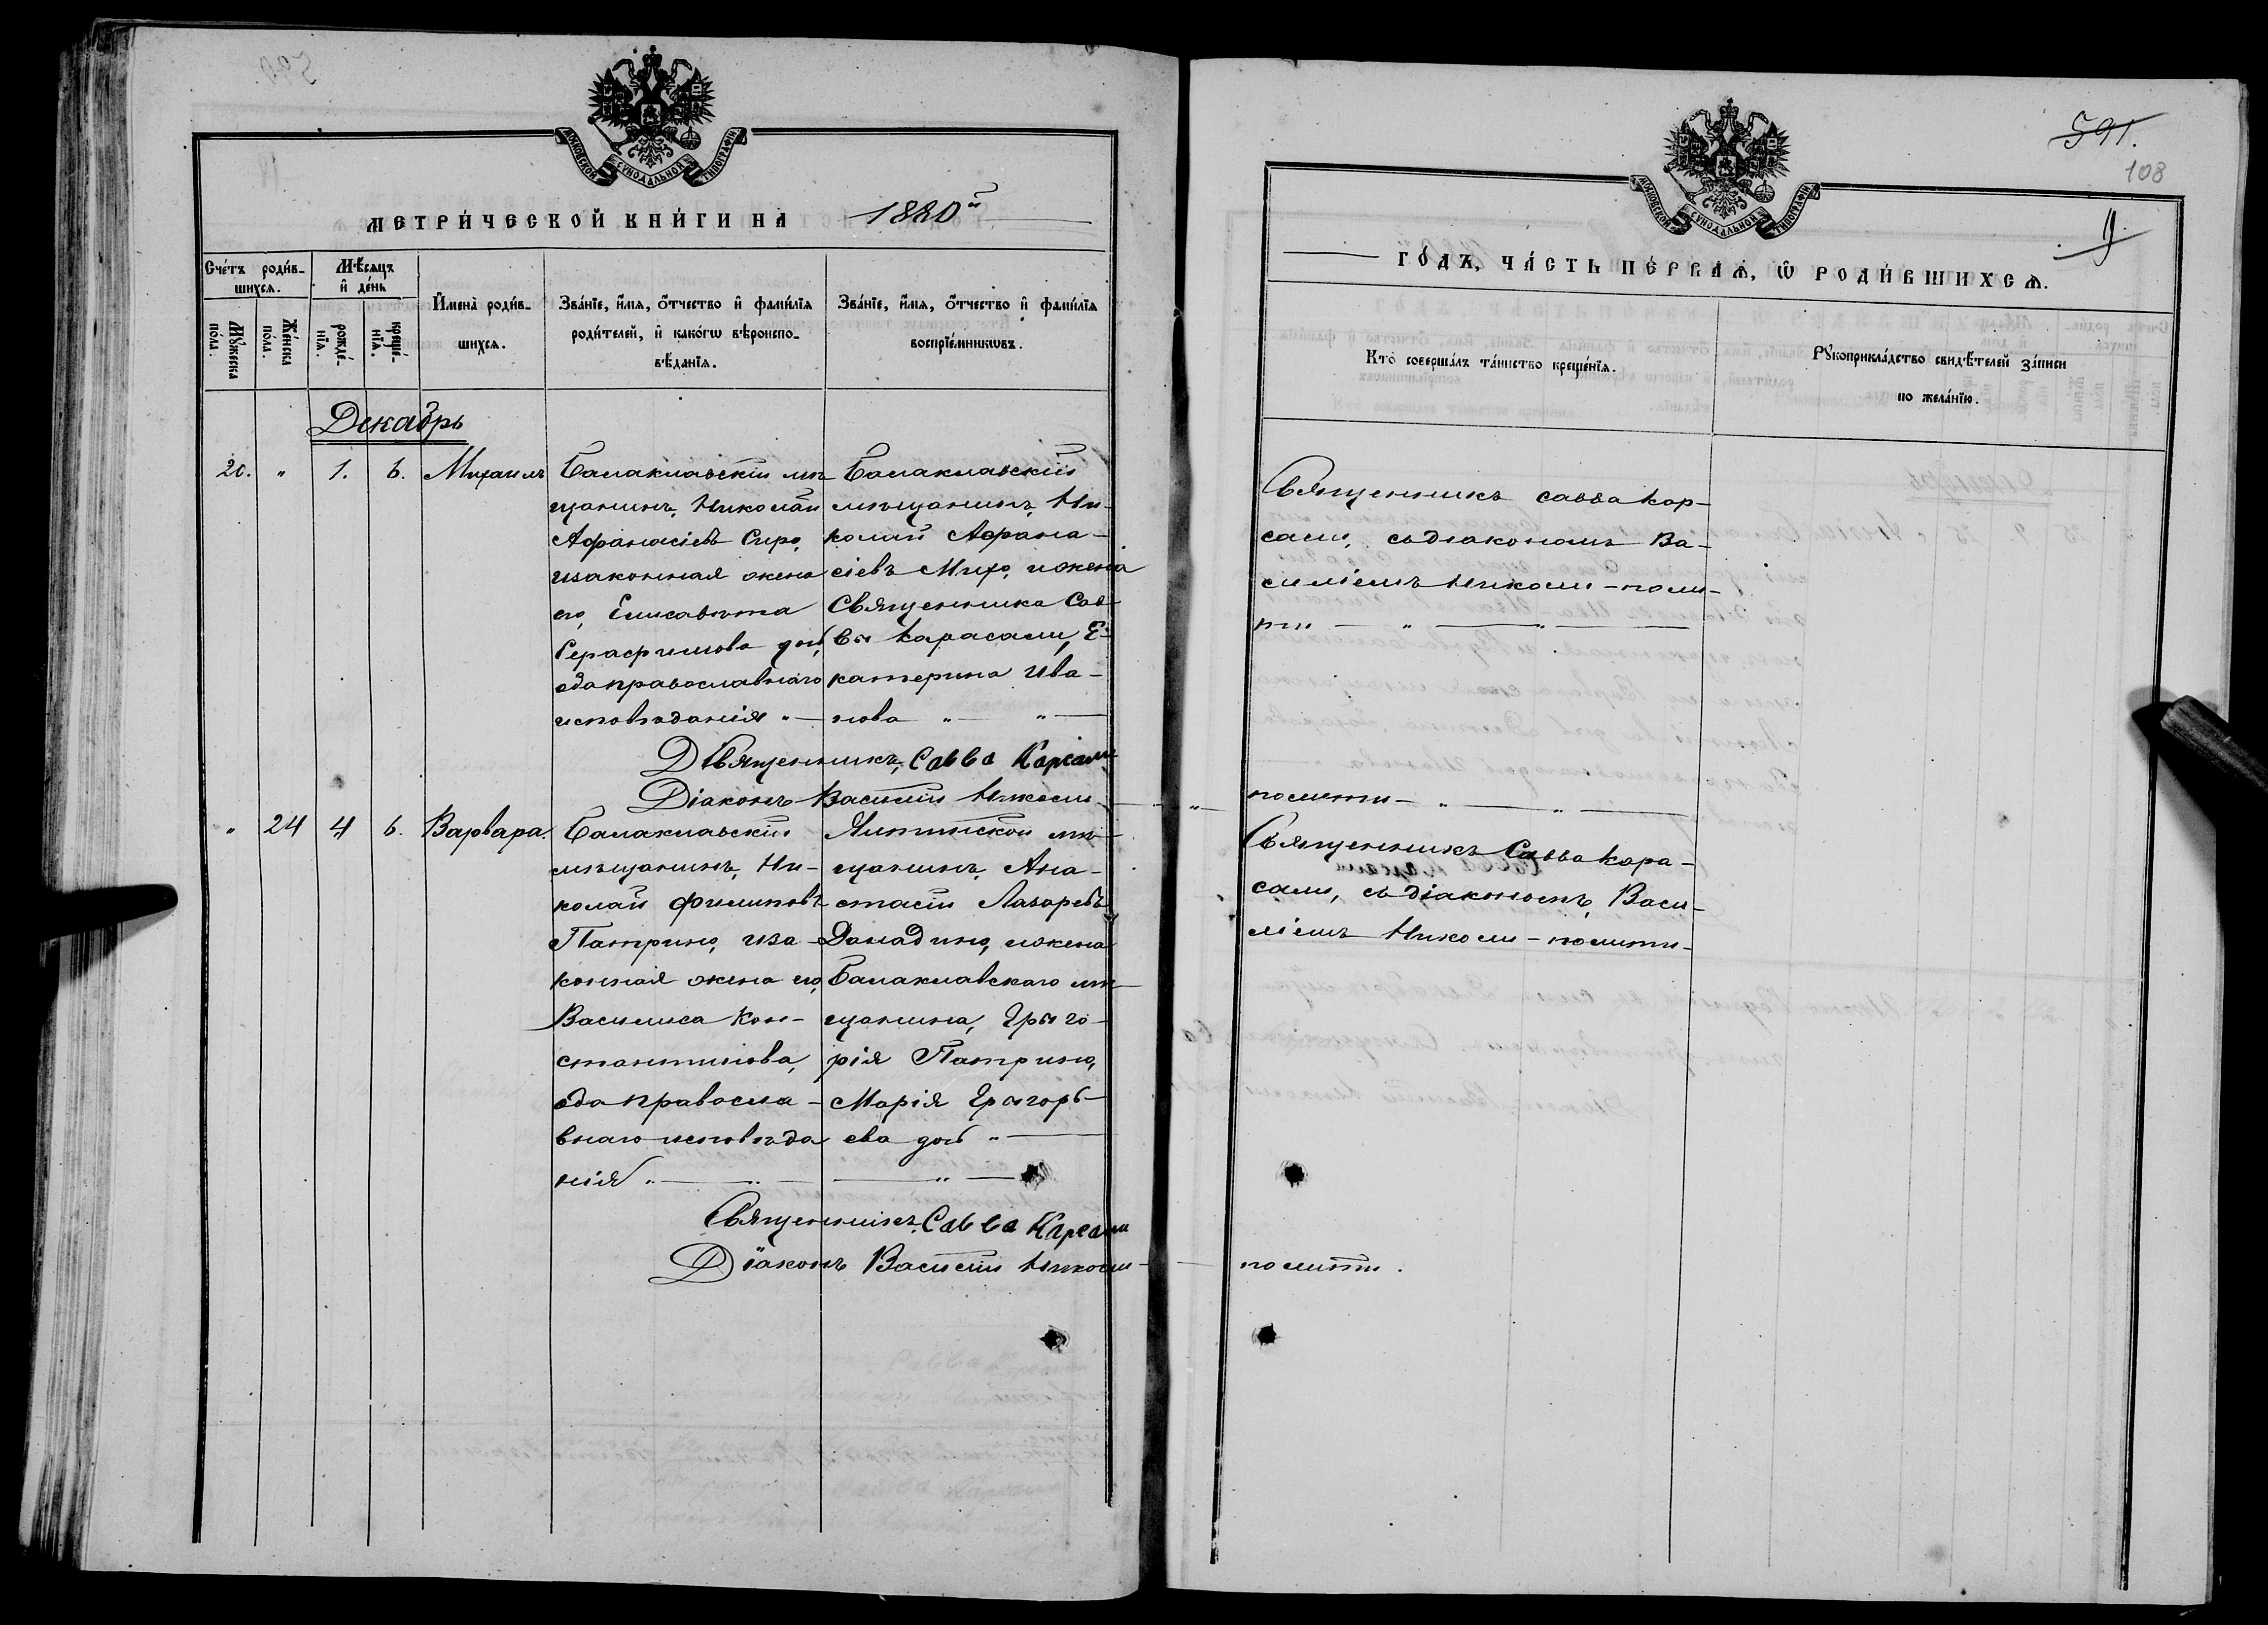 МОСКОВСКОЙ СѴНОДАЛЬНОЙ ТИПОГРАФІИ
МЕТРИ́ЧЕСКОЙ КНИ́ГИ НА 1880й
Сче́тъ роди́в-
шихсѧ.
Мꙋ́жеска
по́ла.
Же́нска
по́ла.
Мѣ́сяцъ
и҆ де́нь
рожде́-
нїѧ.
креще́-
нїѧ.
И҆мена̀ роди́в-
шихсѧ.
Зва́нїе, и҆́мѧ, ѻ҆́тчество и҆ фами́лїѧ
роди́телей, и҆ како́гѡ вѣроиспо-
вѣ́данїѧ.
Зва́нїе, и҆́мѧ, ѻ҆́тчество и҆ фами́лїѧ
воспрїе́мникѡвъ.
Декабрь
20. " 1. 6. Михаилъ
Балаклавскій мѣ
щанинъ, Николай
Афанасіевъ Сиро,
изаконная жена
его, Елисавета
Серафимова доч,
оба православнаго
исповѣданія " —
Балаклавскій
мѣщанинъ, Ни-
колай Афана-
сіевъ Михо, ижена
Священника Сав
вы Карасали, Е-
катерина Ива-
нова " — " —
Священникъ, Савва Карсали
Діаконъ Василій Николи —
" 24 4 6. Варвара.
Балаклавскій
мѣщанинъ, Ни-
колай Филиповъ
Патрино, иза-
конная жена его,
Василиса Кон-
стантинова,
оба правосла-
внаго исповѣда
нія " — " — " —
Ялтинской мѣ-
щанинъ, Ана-
стасій Лазаревъ
Донадино, ижена
Балаклавскаго мѣ-
щанина, Грыго-
рія Патрино,
Марія Грыгорь-
ева доч " —
Священникъ, Савва Карсали
Діаконъ Василій Николи —
591.
108
9.
МОСКОВСКОЙ СѴНОДАЛЬНОЙ ТИПОГРАФІИ
ГО́ДЪ, ЧА́СТЬ ПЕ́РВАѦ, Ѡ҆ РОДИ́ВШИХСѦ.
Кто̀ соверша́лъ та́инство креще́нїѧ.
Рꙋкоприкла́дство свидѣ́телей за́писи
по жела́нїю.
Священникъ Савва Кар-
сали, съ діакономъ Ва-
силіемъ Николи-поли-
ти — " — " —
" полити — " — " —
Священникъ Савва Кара-
сали, съ діакономъ, Васи-
ліемъ Николи-полити-
политти.